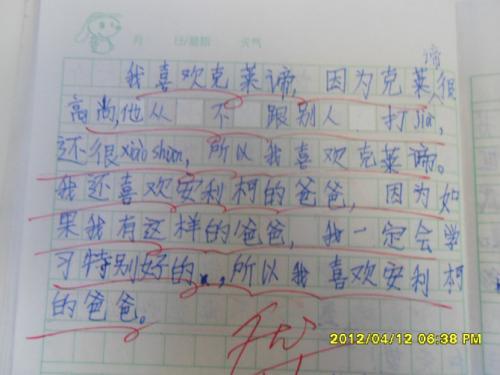 月 日/星期 天气
我喜欢克莱谛,因为克莱谛很
高尚,他从 不 跟别人 打jià,
还很xiào shùn,所以我喜欢克莱谛。
我还喜欢安利柯的爸爸,因为如
果我有这样的爸爸,我一定会学
习特别好的,所以我喜欢安利柯
的爸爸。
2012/04/12 06:38 PM